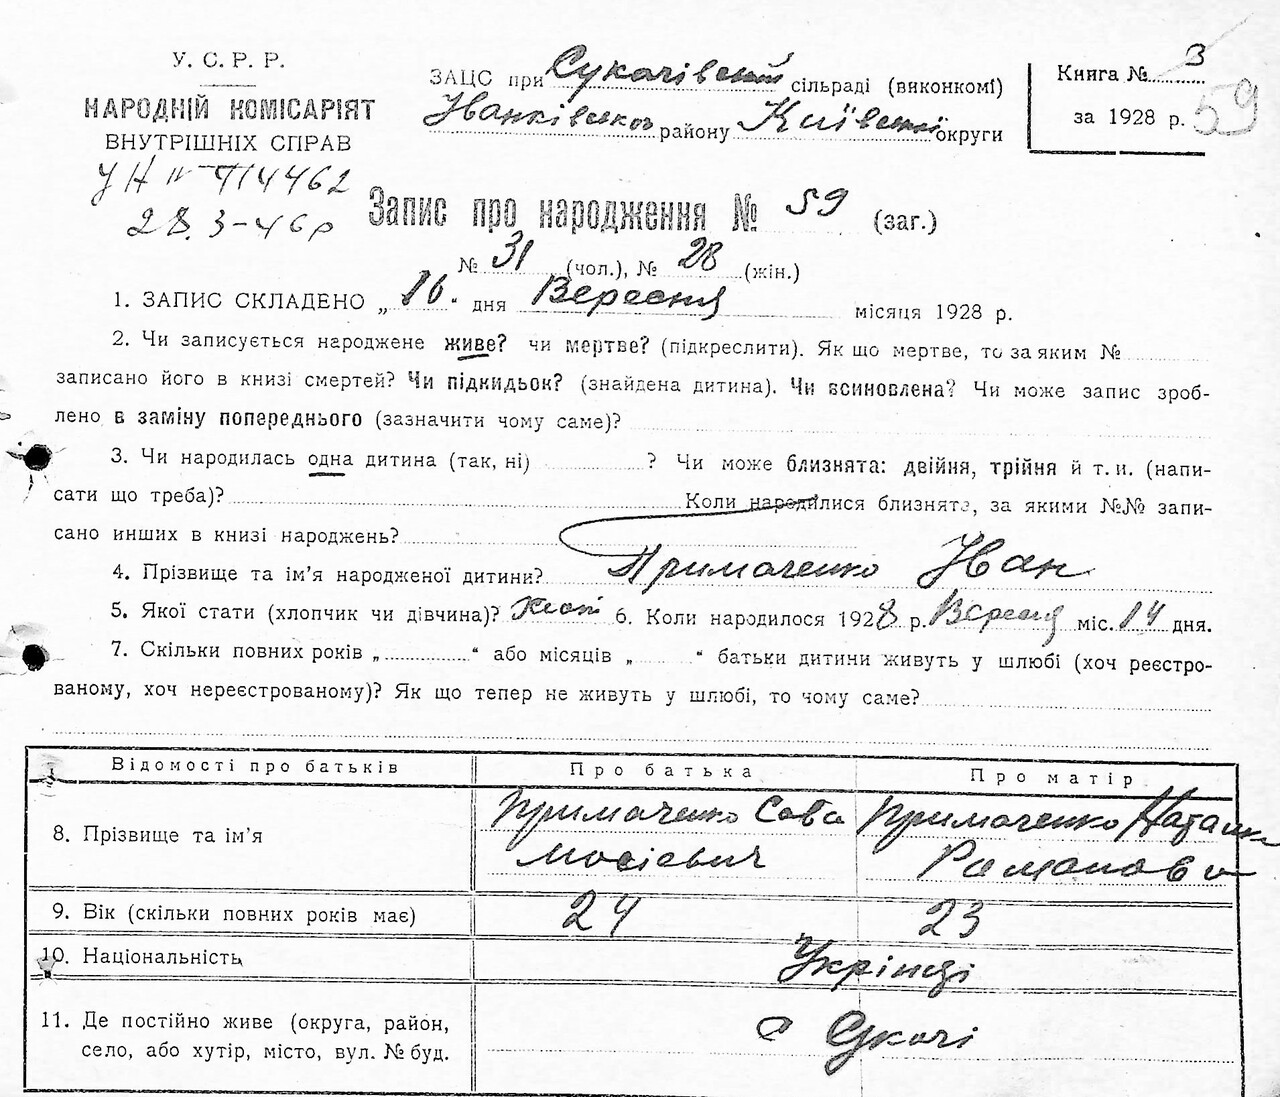 У. С. Р. Р.
НАРОДНІЙ КОМІСАРІЯТ
ВНУТРІШНІХ СПРАВ
УН № 714462
28.3-46р
ЗАЦС при Сукачівській сільраді (виконкомі)
Іванківського району Київської округи
Книга № 3
за 1928 р.
59
Запис про народження № 59 (заг.)
№ 31 (чол.), № 28 (жін.)
1. ЗАПИС СКЛАДЕНО „ 16. дня Вересня місяця 1928 р.
2. Чи записується народжене живе? чи мертве? (підкреслити). Як що мертве, то за яким №
записано його в книзі смертей? Чи підкидьок? (знайдена дитина). Чи всиновлена? Чи може запис зроб-
лено в заміну попереднього (зазначити чому саме)?
3. Чи народилась одна дитина (так, ні) ? Чи може близнята: двійня, трійня й т. и. (напи-
сати що треба)? Коли народилися близнята, за якими №№ запи-
сано инших в книзі народжень?
4. Прізвище та ім’я народженої дитини? Примаченко Іван
5. Якої стати (хлопчик чи дівчина)? 6. Коли народилося 1928 р. Вересня міс. 14 дня.
7. Скільки повних років „ “ або місяців „ “ батьки дитини живуть у шлюбі (хоч реєстро-
ваному, хоч нереєстрованому)? Як що тепер не живуть у шлюбі, то чому саме?
Відомості про батьків Про батька Про матір
8. Прізвище та ім’я Примаченко Сава Мосієвич Примаченко
9. Вік (скільки повних років має) 24 23
10. Національність Укрінці
11. Де постійно живе (округа, район,
село, або хутір, місто, вул. № буд. с Сукачі